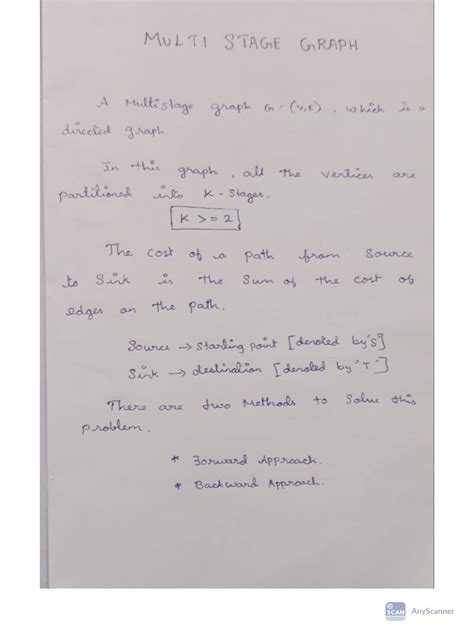 MULTI STAGE GRAPH
A Multistage graph G = (V,E), which is a
directed graph.
In this graph, all the vertices are
partitioned into K - Stages.
K >= 2
The cost of a path from Source
to Sink is the Sum of the cost of
edges on the path.
Source → starting point [denoted by 'S']
Sink → destination [denoted by 'T']
There are two Methods to Solve this
problem.
* Forward Approach.
* Backward Approach.
SCAN AnyScanner